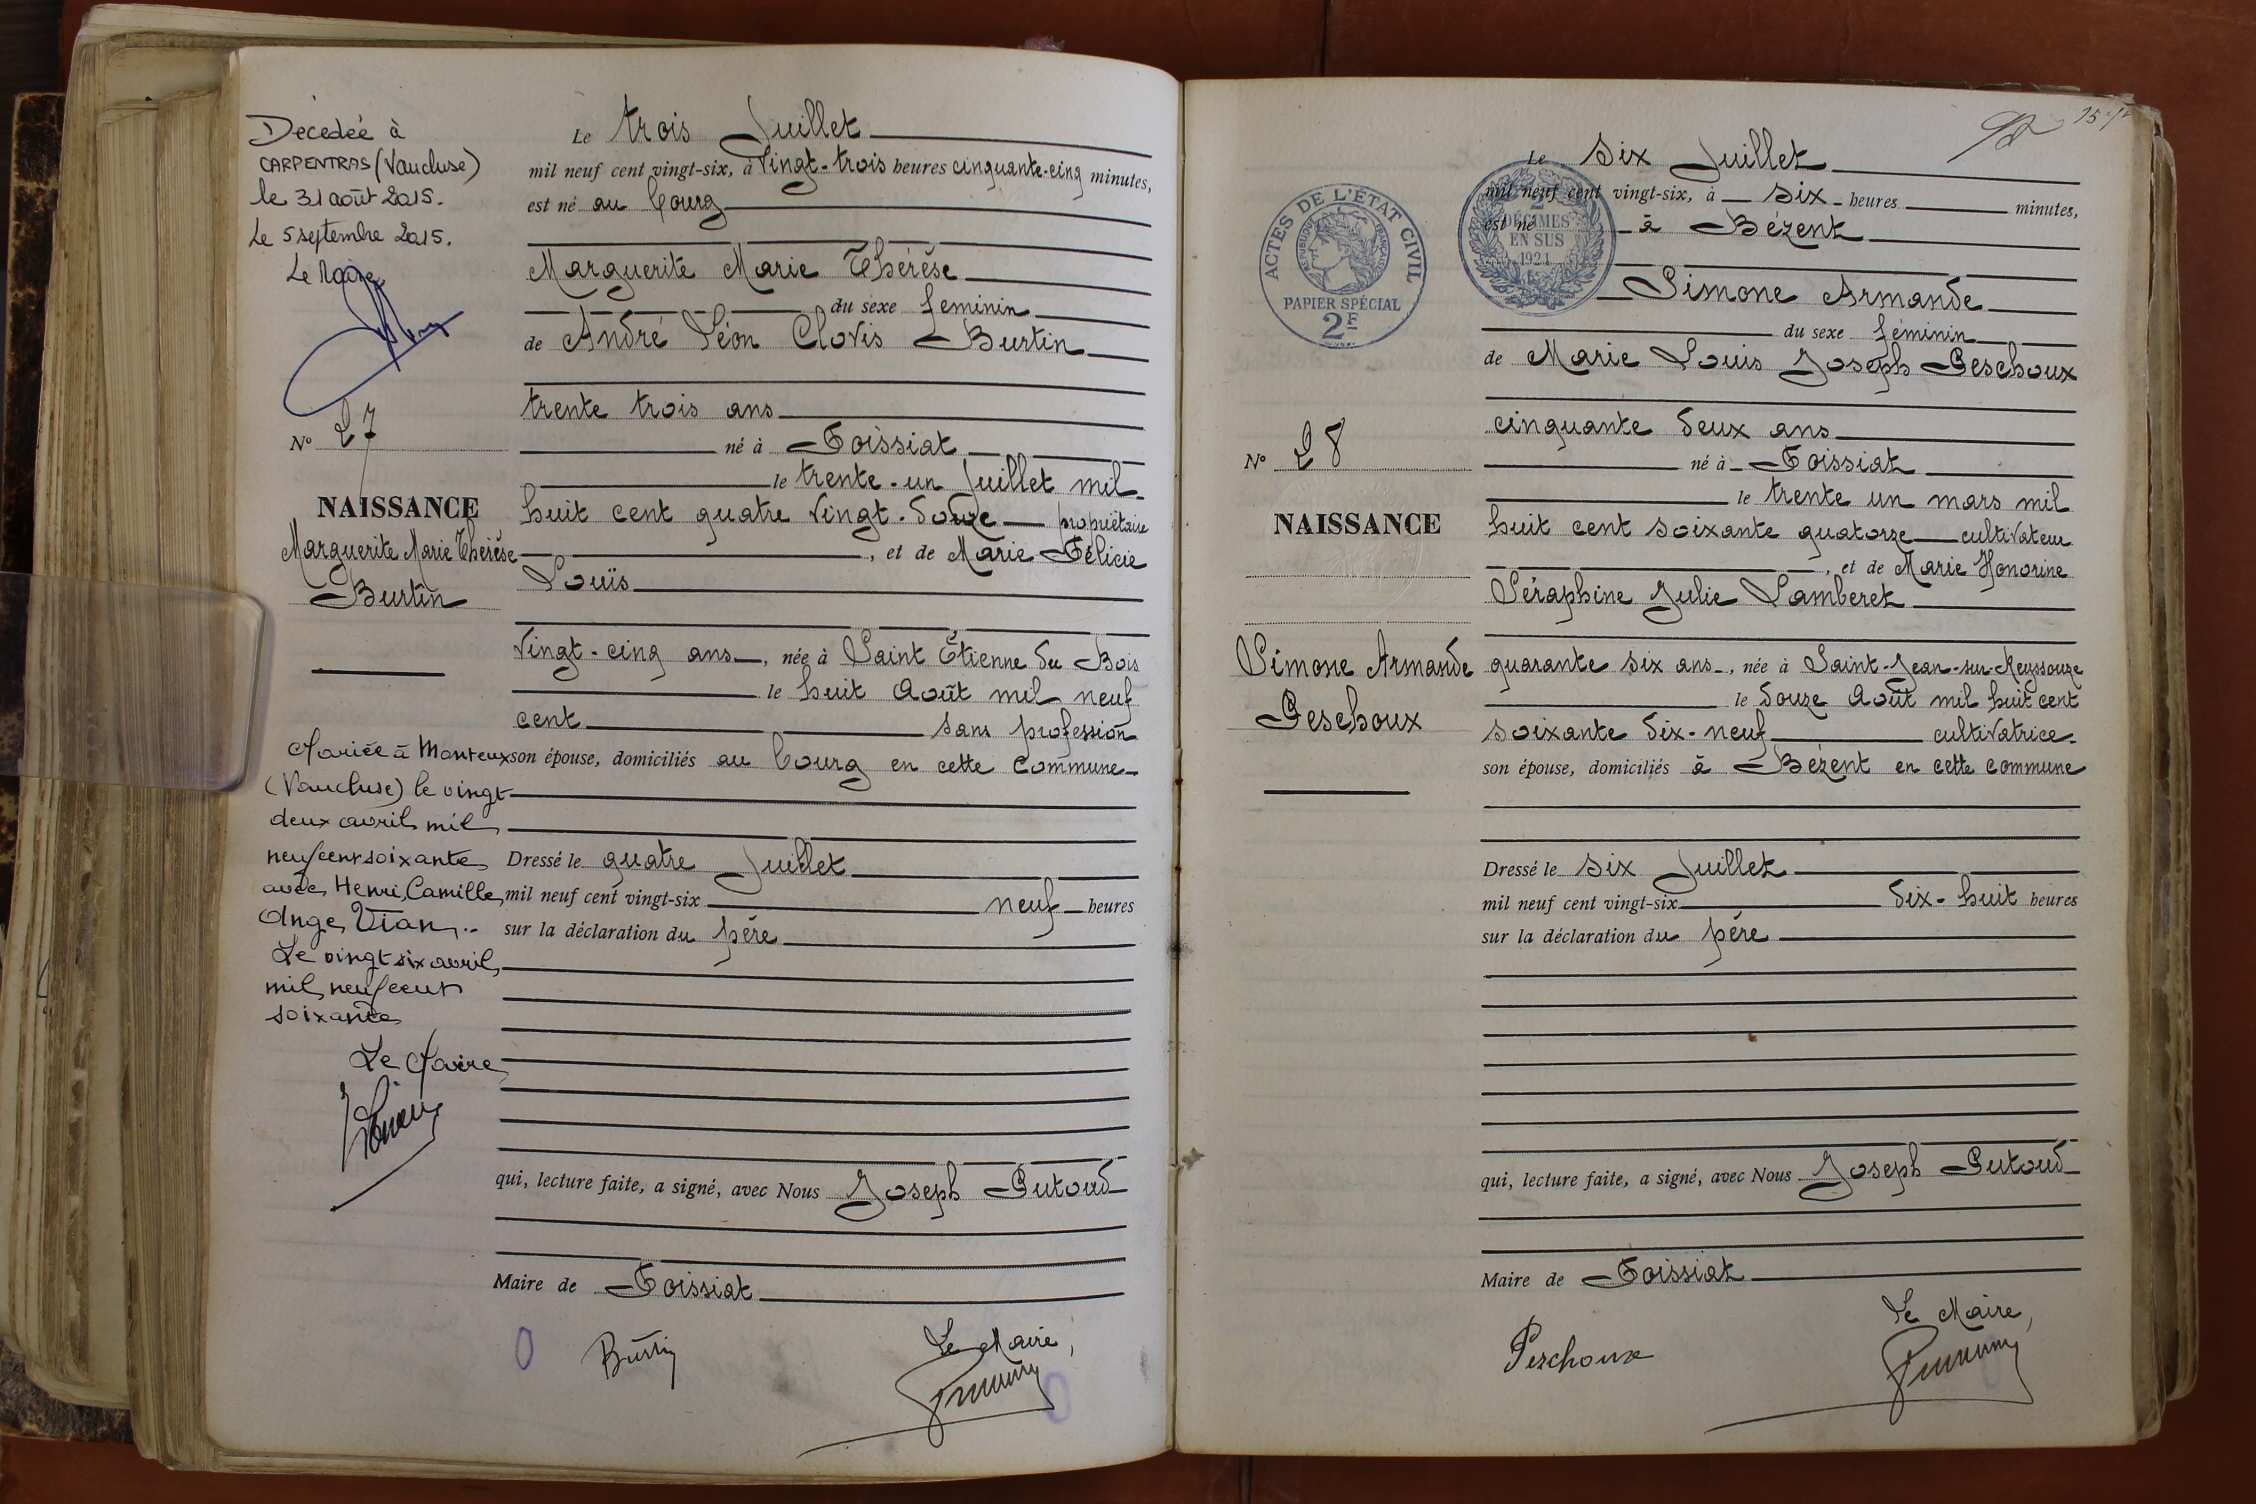 Décédée à
CARPENTRAS (Vaucluse)
le 31 août 2015.
Le 5 septembre 2015.
Le Maire
N° 27
NAISSANCE
Marguerite Marie Thérèse
Burtin
Mariée à Monteux
(Vaucluse) le vingt
deux avril mil
neuf cent soixante
avec Henri, Camille,
Ange Vian.
Le vingt six avril
mil neuf cent
soixante
Le Maire
Le trois Juillet
mil neuf cent vingt-six, à Vingt-trois heures cinquante-cinq minutes,
est né au bourg
Marguerite Marie Thérèse
du sexe feminin
de André Léon Clovis Burtin
trente trois ans
né à Foissiat
le trente-un Juillet mil
huit cent quatre Vingt-douze propriétaire
, et de Marie Félicie
Louis
Vingt-cinq ans, née à Saint Étienne du Bois
le huit Août mil neuf
cent sans profession
son épouse, domiciliés au bourg en cette commune
Dressé le quatre Juillet
mil neuf cent vingt-six neuf heures
sur la déclaration du père
qui, lecture faite, a signé, avec Nous Joseph Putoud
Maire de Foissiat
Burtin
Le Maire,
ACTES DE L'ÉTAT CIVIL
RÉPUBLIQUE FRANÇAISE
PAPIER SPÉCIAL
2F
2
DÉCIMES
EN SUS
1921
N° 28
NAISSANCE
Simone Armande
Peschoux
Le six Juillet
mil neuf cent vingt-six, à six heures minutes,
est né à Bézent
Simone Armande
du sexe féminin
de Marie Louis Joseph Peschoux
cinquante deux ans
né à Foissiat
le trente un mars mil
huit cent soixante quatorze cultivateur
, et de Marie Honorine
Séraphine Julie Lamberet
quarante six ans, née à Saint-Jean-sur-Reyssouze
le douze Août mil huit cent
soixante dix-neuf cultivatrice
son épouse, domiciliés à Bézent en cette commune
Dressé le six Juillet
mil neuf cent vingt-six dix-huit heures
sur la déclaration du père
qui, lecture faite, a signé, avec Nous Joseph Putoud
Maire de Foissiat
Peschoux
Le Maire,